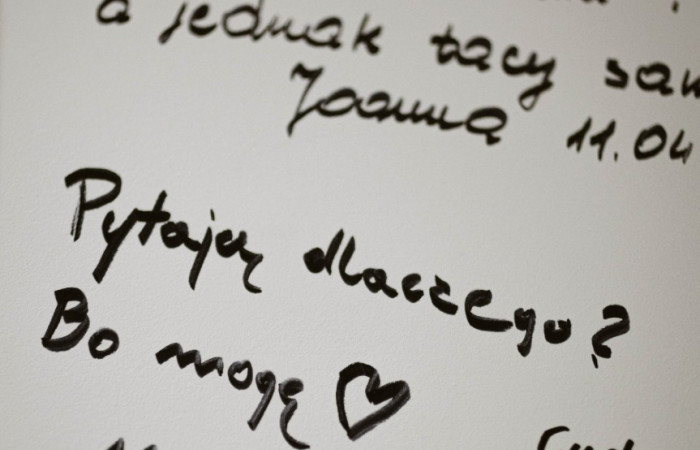 a jednak tacy
Joanna 11.04
Pytają dlaczego?
Bo mogę ♡